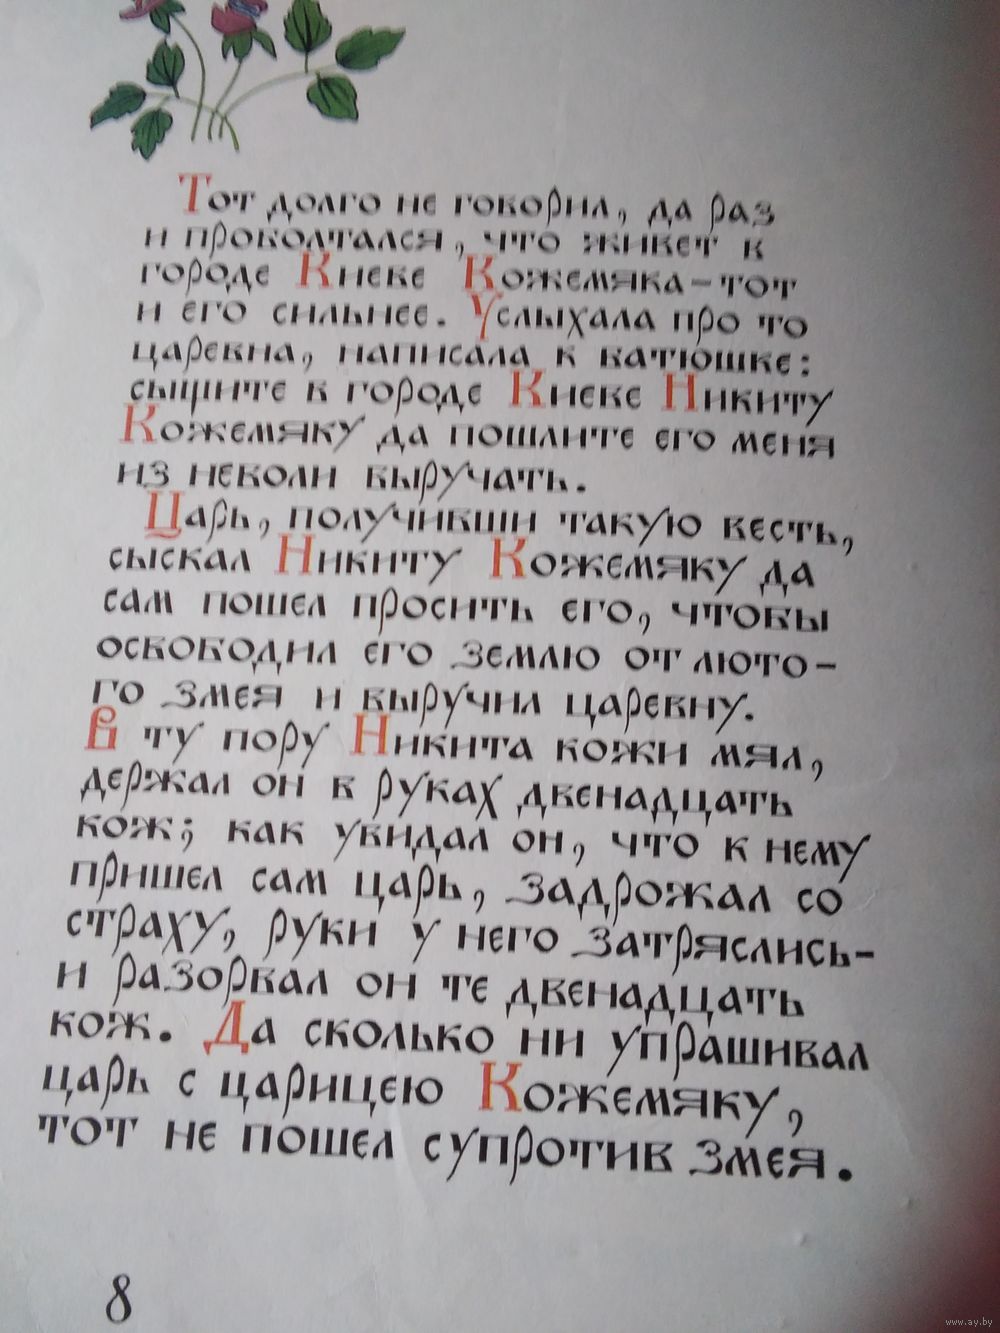 Тот долго не говорил, да раз
и проболтался, что живет в
городе Киеве Кожемяка – тот
и его сильнее. Услыхала про то
царевна, написала к батюшке:
сыщите в городе Киеве Никиту
Кожемяку да пошлите его меня
из неволи выручать.
Царь, получивши такую весть,
сыскал Никиту Кожемяку да
сам пошел просить его, чтобы
освободил его землю от люто-
го змея и выручил царевну.
В ту пору Никита кожи мял,
держал он в руках двенадцать
кож; как увидал он, что к нему
пришел сам царь, задрожал со
страху, руки у него затряслись-
и разорвал он те двенадцать
кож. Да сколько ни упрашивал
царь с царицею Кожемяку,
тот не пошел супротив змея.
8
www.ay.by